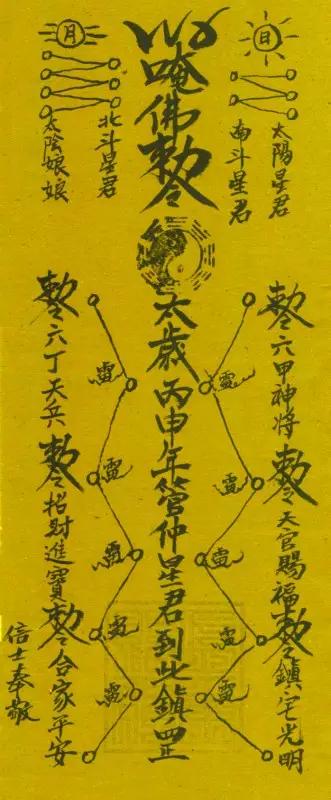 日
太陽星君
南斗星君
唵佛敕令
太歲丙申年管仲星君到此鎮四正
月
北斗星君
太陰娘娘
敕令六甲神將敕令天官賜福敕令鎮宅光明
敕令六丁天兵敕令招財進寶敕令合家平安
信士奉敬